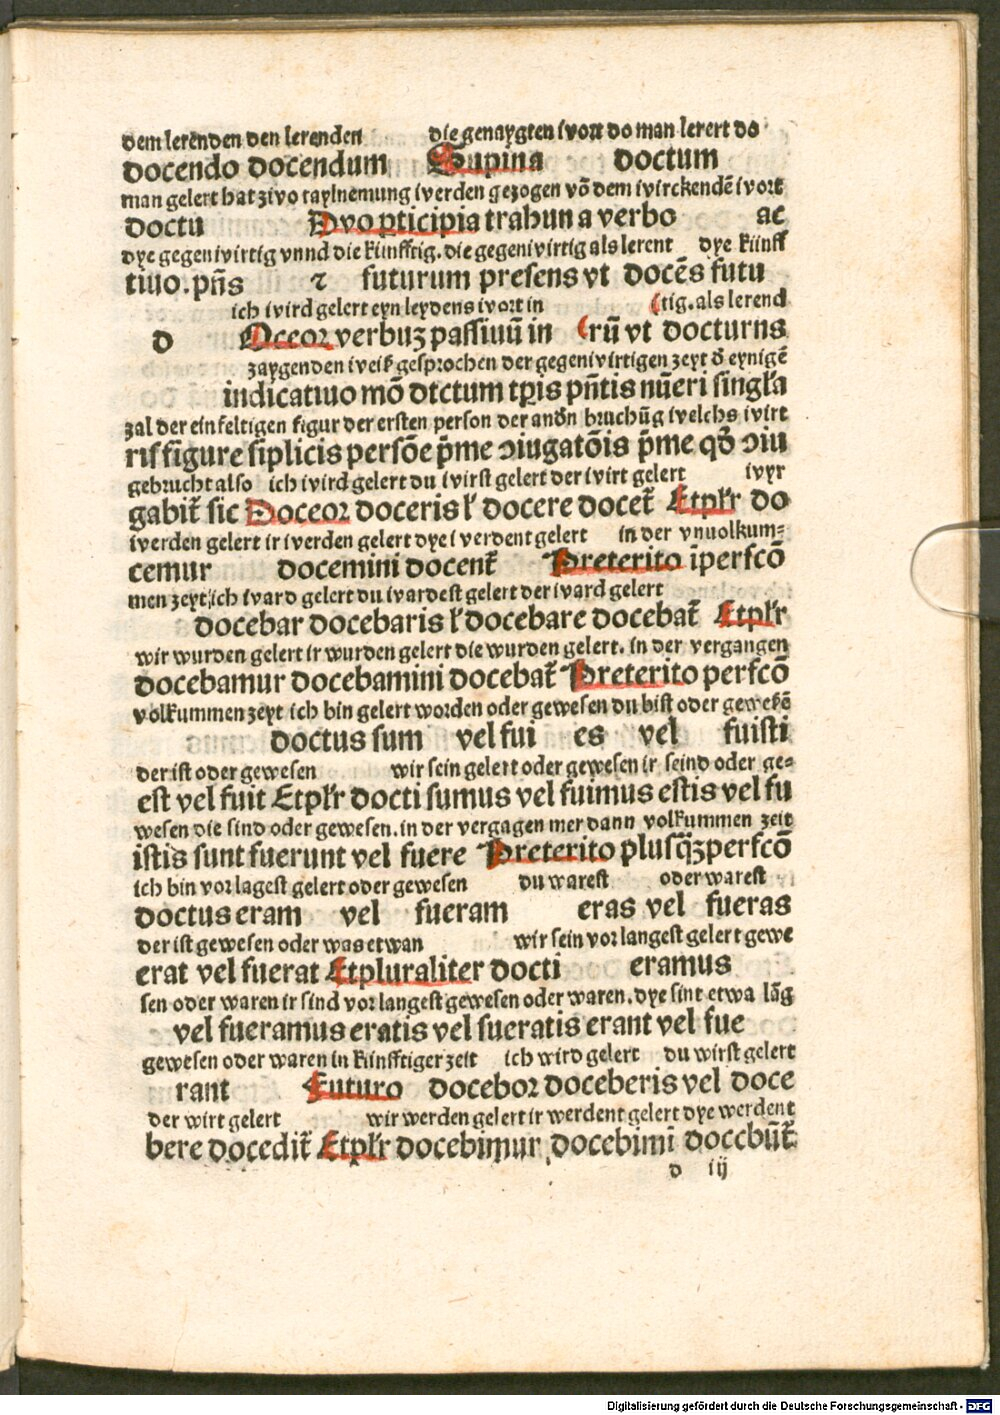 dem lerenden den lerenden die genaygten wort do man lerert do
docendo docendum Supina doctum
man gelert hat zwo taylnemung werden gezogen võ dem wirckendẽ wort
doctu Dvo ꝑticipia trahun a verbo ac
dye gegenwirtig vnnd die künfftig. die gegenwirtig als lerent dye künff
tiuo. pñs ⁊ futurum presens vt docẽs futu
ich wird gelert eyn leydens wort in (tig. als lerend
d Oceor verbuʒ passiuũ in (rũ vt docturns
zaygenden weiß gesprochen der gegenwirtigen zeyt ð eynigẽ
indicatiuo mõ dtctum tꝑis pñtis nũeri singl'a
zal der einfeltigen figur der ersten person der andñ bruchũg welchs wirt
rif figure siplicis persõe p̃me ↄiugatõis p̃me qð ↄiu
gebrucht also ich wird gelert du wirst gelert der wirt gelert wyr
gabit̃ sic Doceor doceris l' docere docet̃ Etpl'r do
werden gelert ir werden gelert dye werdent gelert in der vnuolkum⸗
cemur docemini docent̃ Preterito ĩperfcõ
men zeyt, ich ward gelert du wardest gelert der ward gelert
docebar docebaris l' docebare docebat̃ Etpl'r
wir wurden gelert ir wurden gelert die wurden gelert. in der vergangen
docebamur docebamini docebat̃ Preterito perfcõ
volkummen zeyt ich bin gelert worden oder gewesen du bist oder gewesẽ
doctus sum vel fui es vel fuisti
der ist oder gewesen wir sein gelert oder gewesen ir seind oder ge⸗
est vel fuit Etpl'r docti sumus vel fuimus estis vel fu
wesen die sind oder gewesen. in der vergagen mer dann volkummen zeit
istis sunt fuerunt vel fuere Preterito plusq̃ʒperfcõ
ich bin vor lagest gelert oder gewesen du warest oder warest
doctus eram vel fueram eras vel fueras
der ist gewesen oder was etwan wir sein vor langest gelert gewe
erat vel fuerat Etpluraliter docti eramus
sen oder waren ir sind vor langest gewesen oder waren. dye sint etwa lãg
vel fueramus eratis vel sueratis erant vel fue
gewesen oder waren in künfftiger zeit ich wird gelert du wirst gelert
rant Futuro docebor doceberis vel doce
der wirt gelert wir werden gelert ir werdent gelert dye werdent
bere docedit̃ Etpl'r docebimur docebimĩ doccbũt̃
d iij
Digitalisierung gefördert durch die Deutsche Forschungsgemeinschaft - DFG